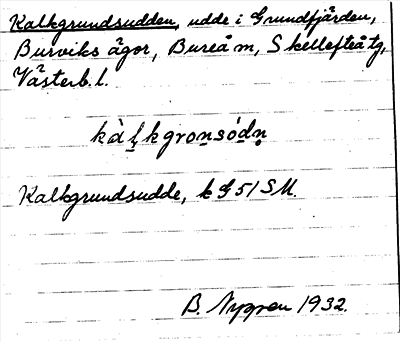 Kalkgrundsudden, udde i Grundfjärden,
Burviks ägor, Bureå m, Skellefteå tg,
Västerb. l.
kàḷkgronsódn̥
Kalkgrundsudde, k G 51 SM.
B. Nygren 1932.